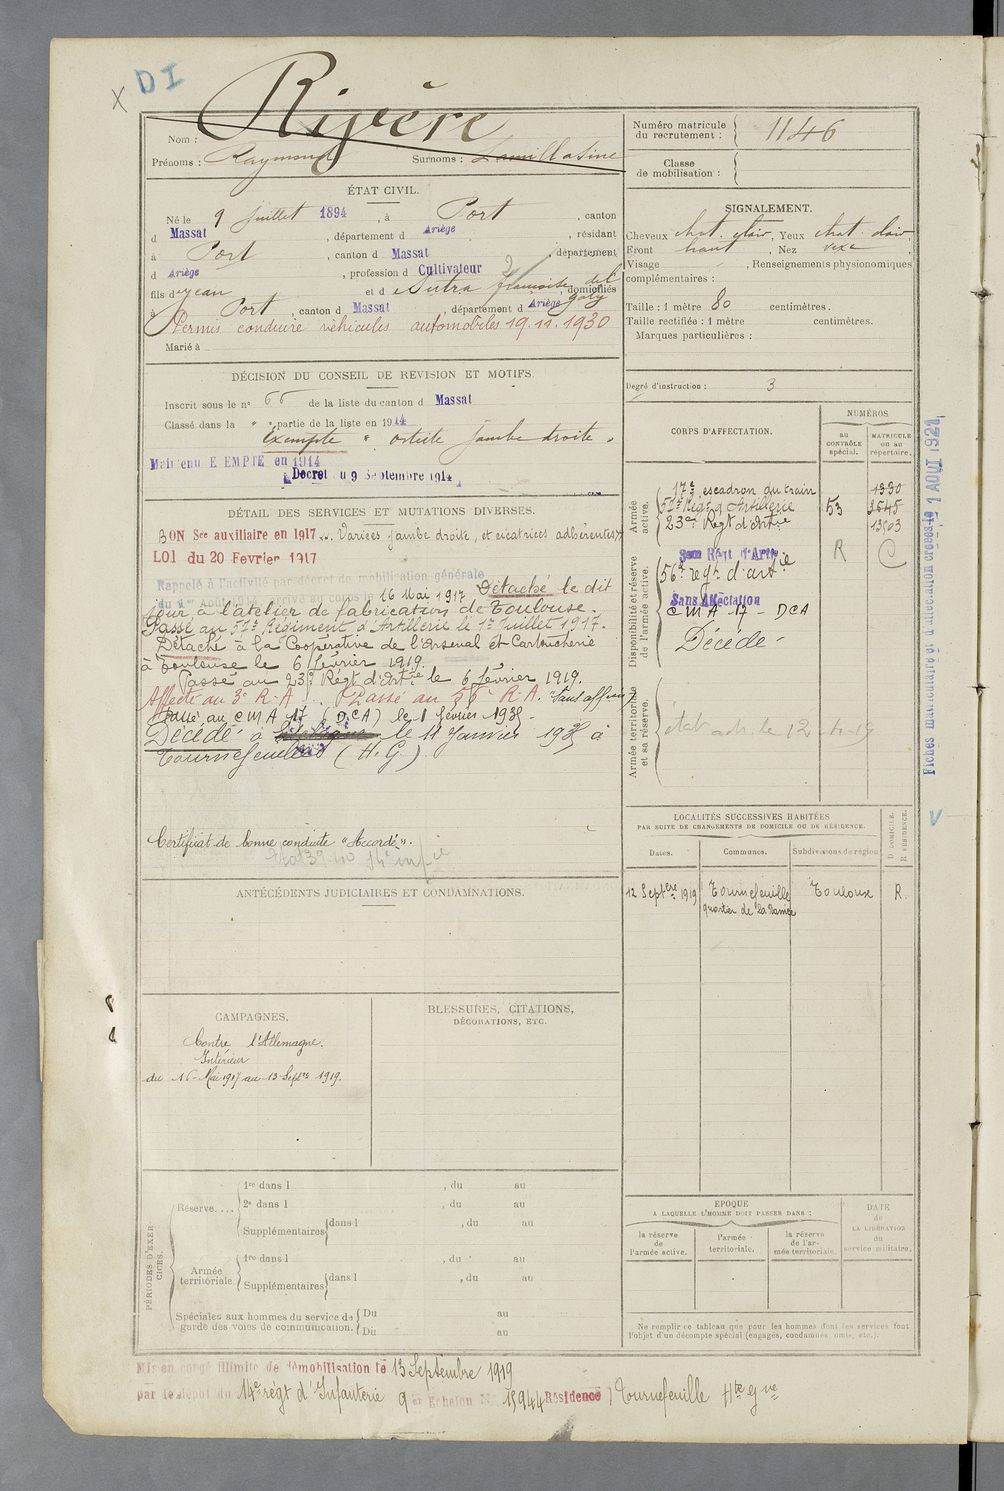 X DI
Nom : Rivère
Prénoms : Raymond Surnoms :
ÉTAT CIVIL.
Né le 9 Juillet 1894, à Port, canton
d Massat, département d Ariège, résidant
à Port, canton d Massat, département
d Ariège, profession d Cultivateur
fils de Jean et de Sutra françoise, domiciliés
à Port, canton d Massat département d Ariège
Permis conduire véhicules automobiles 19.11.1930
Marié à
DÉCISION DU CONSEIL DE REVISION ET MOTIFS.
Inscrit sous le no 66 de la liste du canton d Massat
Classé dans la " " partie de la liste en 1914
Exempté " ostéite jambe droite "
Maintenu EXEMPTÉ en 1914
Décret du 9 Septembre 1914
DÉTAIL DES SERVICES ET MUTATIONS DIVERSES.
BON Sce auxiliaire en 1917 Varices jambe droite, et cicatrices adhérentes
LOI du 20 Fevrier 1917
Rappelé à l'activité par décret de mobilisation générale
du 1er Août 1914 arrivé au corps le 16 Mai 1917 Détaché le dit
jour à l'atelier de fabrication de Toulouse.
Passé au 52e Régiment d'Artillerie le 1er Juillet 1917.
Détaché à la Coopérative de l'Arsenal et Cartoucherie
à Toulouse le 6 février 1919.
Passé au 23e Régt d'Artie le 6 février 1919.
Affecté au 3e R.A. Passé au 56e R.A. Sans aff
Passé au C M A 17 (DCA) le 1 février 1935
Décédé à le 11 Janvier à
Tournefeuille (H.G.)
Certificat de bonne conduite "Accordé".
ANTÉCÉDENTS JUDICIAIRES ET CONDAMNATIONS.
CAMPAGNES.
Contre l'Allemagne.
Intérieur
du 16 Mai 1917 au 13 Septbre 1919.
BLESSURES, CITATIONS,
DÉCORATIONS, ETC.
PÉRIODES D'EXERCICES.
Réserve....
1re dans l , du au
2e dans l , du au
Supplémentaires dans l , du au
Armée territoriale.
1re dans l , du au
Supplémentaires dans l , du au
Spéciales aux hommes du service de garde des voies de communication.
Du au
Du au
Mis en congé illimité de démobilisation le 13 Septembre 1919
par le dépôt du 14e régt d'Infanterie 9e Echelon No 15944 Résidence Tournefeuille Hte Gne
Numéro matricule
du recrutement : 1146
Classe
de mobilisation :
SIGNALEMENT.
Cheveux chat. clair, Yeux chat. clair
Front haut, Nez vexe
Visage , Renseignements physionomiques
complémentaires :
Taille : 1 mètre 80 centimètres.
Taille rectifiée : 1 mètre centimètres.
Marques particulières :
Degré d'instruction : 3
CORPS D'AFFECTATION.
NUMÉROS
AU CONTRÔLE spécial.
MATRICULE OU AU répertoire.
Armée active.
17e escadron du train 1330
52e Régt d'Artillerie 53 3645
23e Régt d'Artie 13503
Disponibilité et réserve de l'armée active.
Sans Régt d'Artie R C
56e regt d'artie
Sans Affectation
C M A 17 - DCA
Décédé
Armée territoriale et sa réserve.
Fiches matriculaire et d'affectation créées le 1 AOUT 1921
LOCALITÉS SUCCESSIVES HABITÉES
PAR SUITE DE CHANGEMENTS DE DOMICILE OU DE RÉSIDENCE.
Dates. Communes. Subdivisions de région D. DOMICILE. R. RÉSIDENCE.
12 Septbre 1919 Tournefeuille Toulouse R.
quartier de la
EPOQUE
A LAQUELLE L'HOMME DOIT PASSER DANS :
la réserve de l'armée active.
l'armée territoriale.
la réserve de l'armée territoriale.
DATE de LA LIBÉRATION du service militaire.
Ne remplir ce tableau que pour les hommes dont les services font
l'objet d'un décompte spécial (engagés, condamnés, omis, etc.).